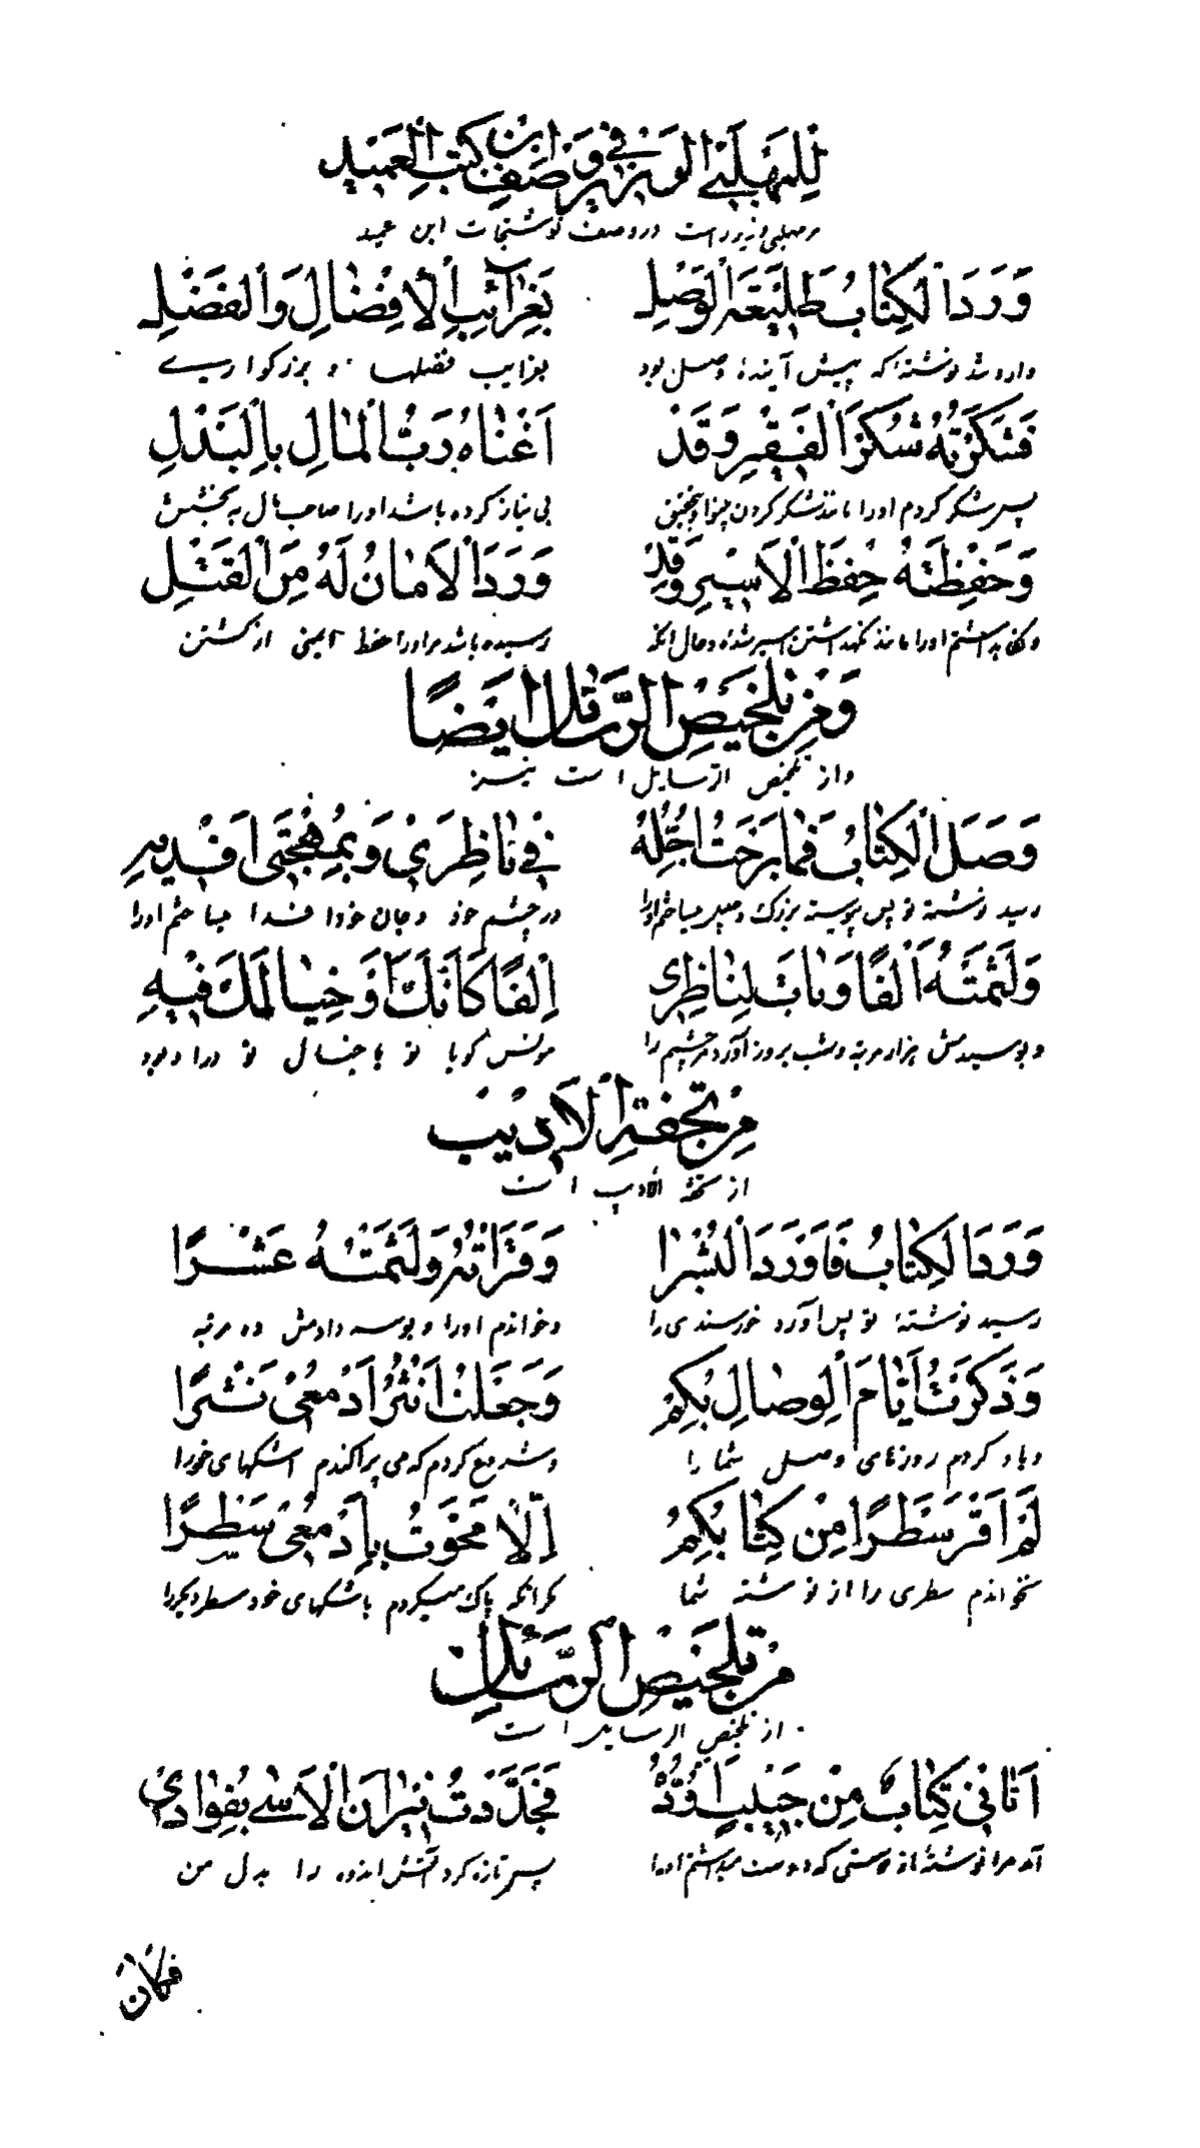 لِلْمُهَلَّبِیِّ الْوَزِیرِ فِی وَصْفِ کُتُبِ ابْنِ الْعَمِیدِ
مر مهلبی وزیر راست در وصف نوشتجات ابن عمید
وَرَدَ الْکِتٰابُ طَلِیعَةَ الْوَصْلِ بِغَرٰائِبِ الْاِفْضٰالِ وَالْفَضْلِ
وارد شد نوشته که پیش آینده وصل بود بغرایب فضلها و بزرکواریی
فَشَکَرْتُهُ شُکْرَ الْفَقِیرِ وَقَدْ اَغْنٰاهُ رَبُّ الْمٰالِ بِالْبَذْلِ
پس شکر کردم اورا مانند شکر کردن بی نیاز کرده باشد اورا صاحب مال به بخشش
وَحَفِظْتُهُ حِفْظَ الْاَسِیرِ وَقَدْ وَرَدَ الْاَمٰانُ لَهُ مِنَ الْقَتْلِ
و نکاه داشتم اورا مانند نکهداشتن اسیر شده و حال انکه رسیده باشد مر اورا خط ایمنی از کشتن
وَمِنْ تَلْخِیصِ الرَّسٰائِلِ اَیْضًا
و از تلخیص الرسایل است نیز
وَصَلَ الْکِتٰابُ فَمٰا بَرَحْتُ اُجِلُّهُ فِی نٰاظِرَیَّ وَبِمُهْجَتِی اَفْدِیهِ
رسید نوشته تو پس پیوسته بزرک در چشم خود و بجان خود فدا میساختم اورا
وَلَثَمْتُهُ اَلْفًا وَبٰاتَ لِنٰاظِرِی اِلْفًا کَاَنَّکَ اَوْ خِیٰالَکَ فِیهِ
و بوسیدمش هزار مرتبه و شب بروز آورد مر چشم را مونس کویا تو یا خیال تو در او بود
مِنْ تُحْفَةِ الْاَدِیبِ
از تحفة الادیب است
وَرَدَ الْکِتٰابُ فَاَوْرَدَ الْبُشْرٰا وَقَرَأْتُهُ وَلَثَمْتُهُ عَشْرًا
رسید نوشتهٔ تو پس آورد خورسندی را و خواندم اورا و بوسه دادمش ده مرتبه
وَذَکَرْتُ اَیّٰامَ الْوِصٰالِ بِکُمْ وَجَعَلْتُ اَنْثُرُ اَدْمُعِی نَثْرًا
و یاد کردم روزهای وصل شما را و شروع کردم که می پراکندم اشکهای خود را
لَمْ اَقْرَ سَطْرًا مِنْ کِتٰابِکُمُ اِلّٰا مَحَوْتُ بِاَدْمُعِی سَطْرًا
نخواندم سطری را از نوشته شما مکر انکه پاک میکردم باشکهای خود سطر دیکر را
مِنْ تَلْخِیصِ الرَّسٰائِلِ
از تلخیص الرسایل است
اَتٰانِی کِتٰابٌ مِنْ حَبِیبٍ اَوَدُّهُ فَجَدَّدَتْ نِیرٰانَ الْاَسٰی بِفُوٰادِی
آمد مرا نوشتهٔ از دوستی که دوست میداشتم اورا پس تازه کرد آتش اندوه را به دل من
فکان